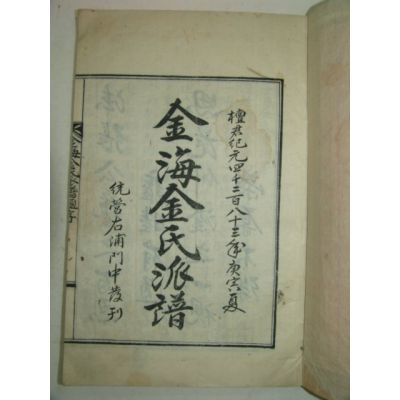 檀君紀元四千二百八十三年庚寅夏
金海金氏派譜
統營右浦門中發刊